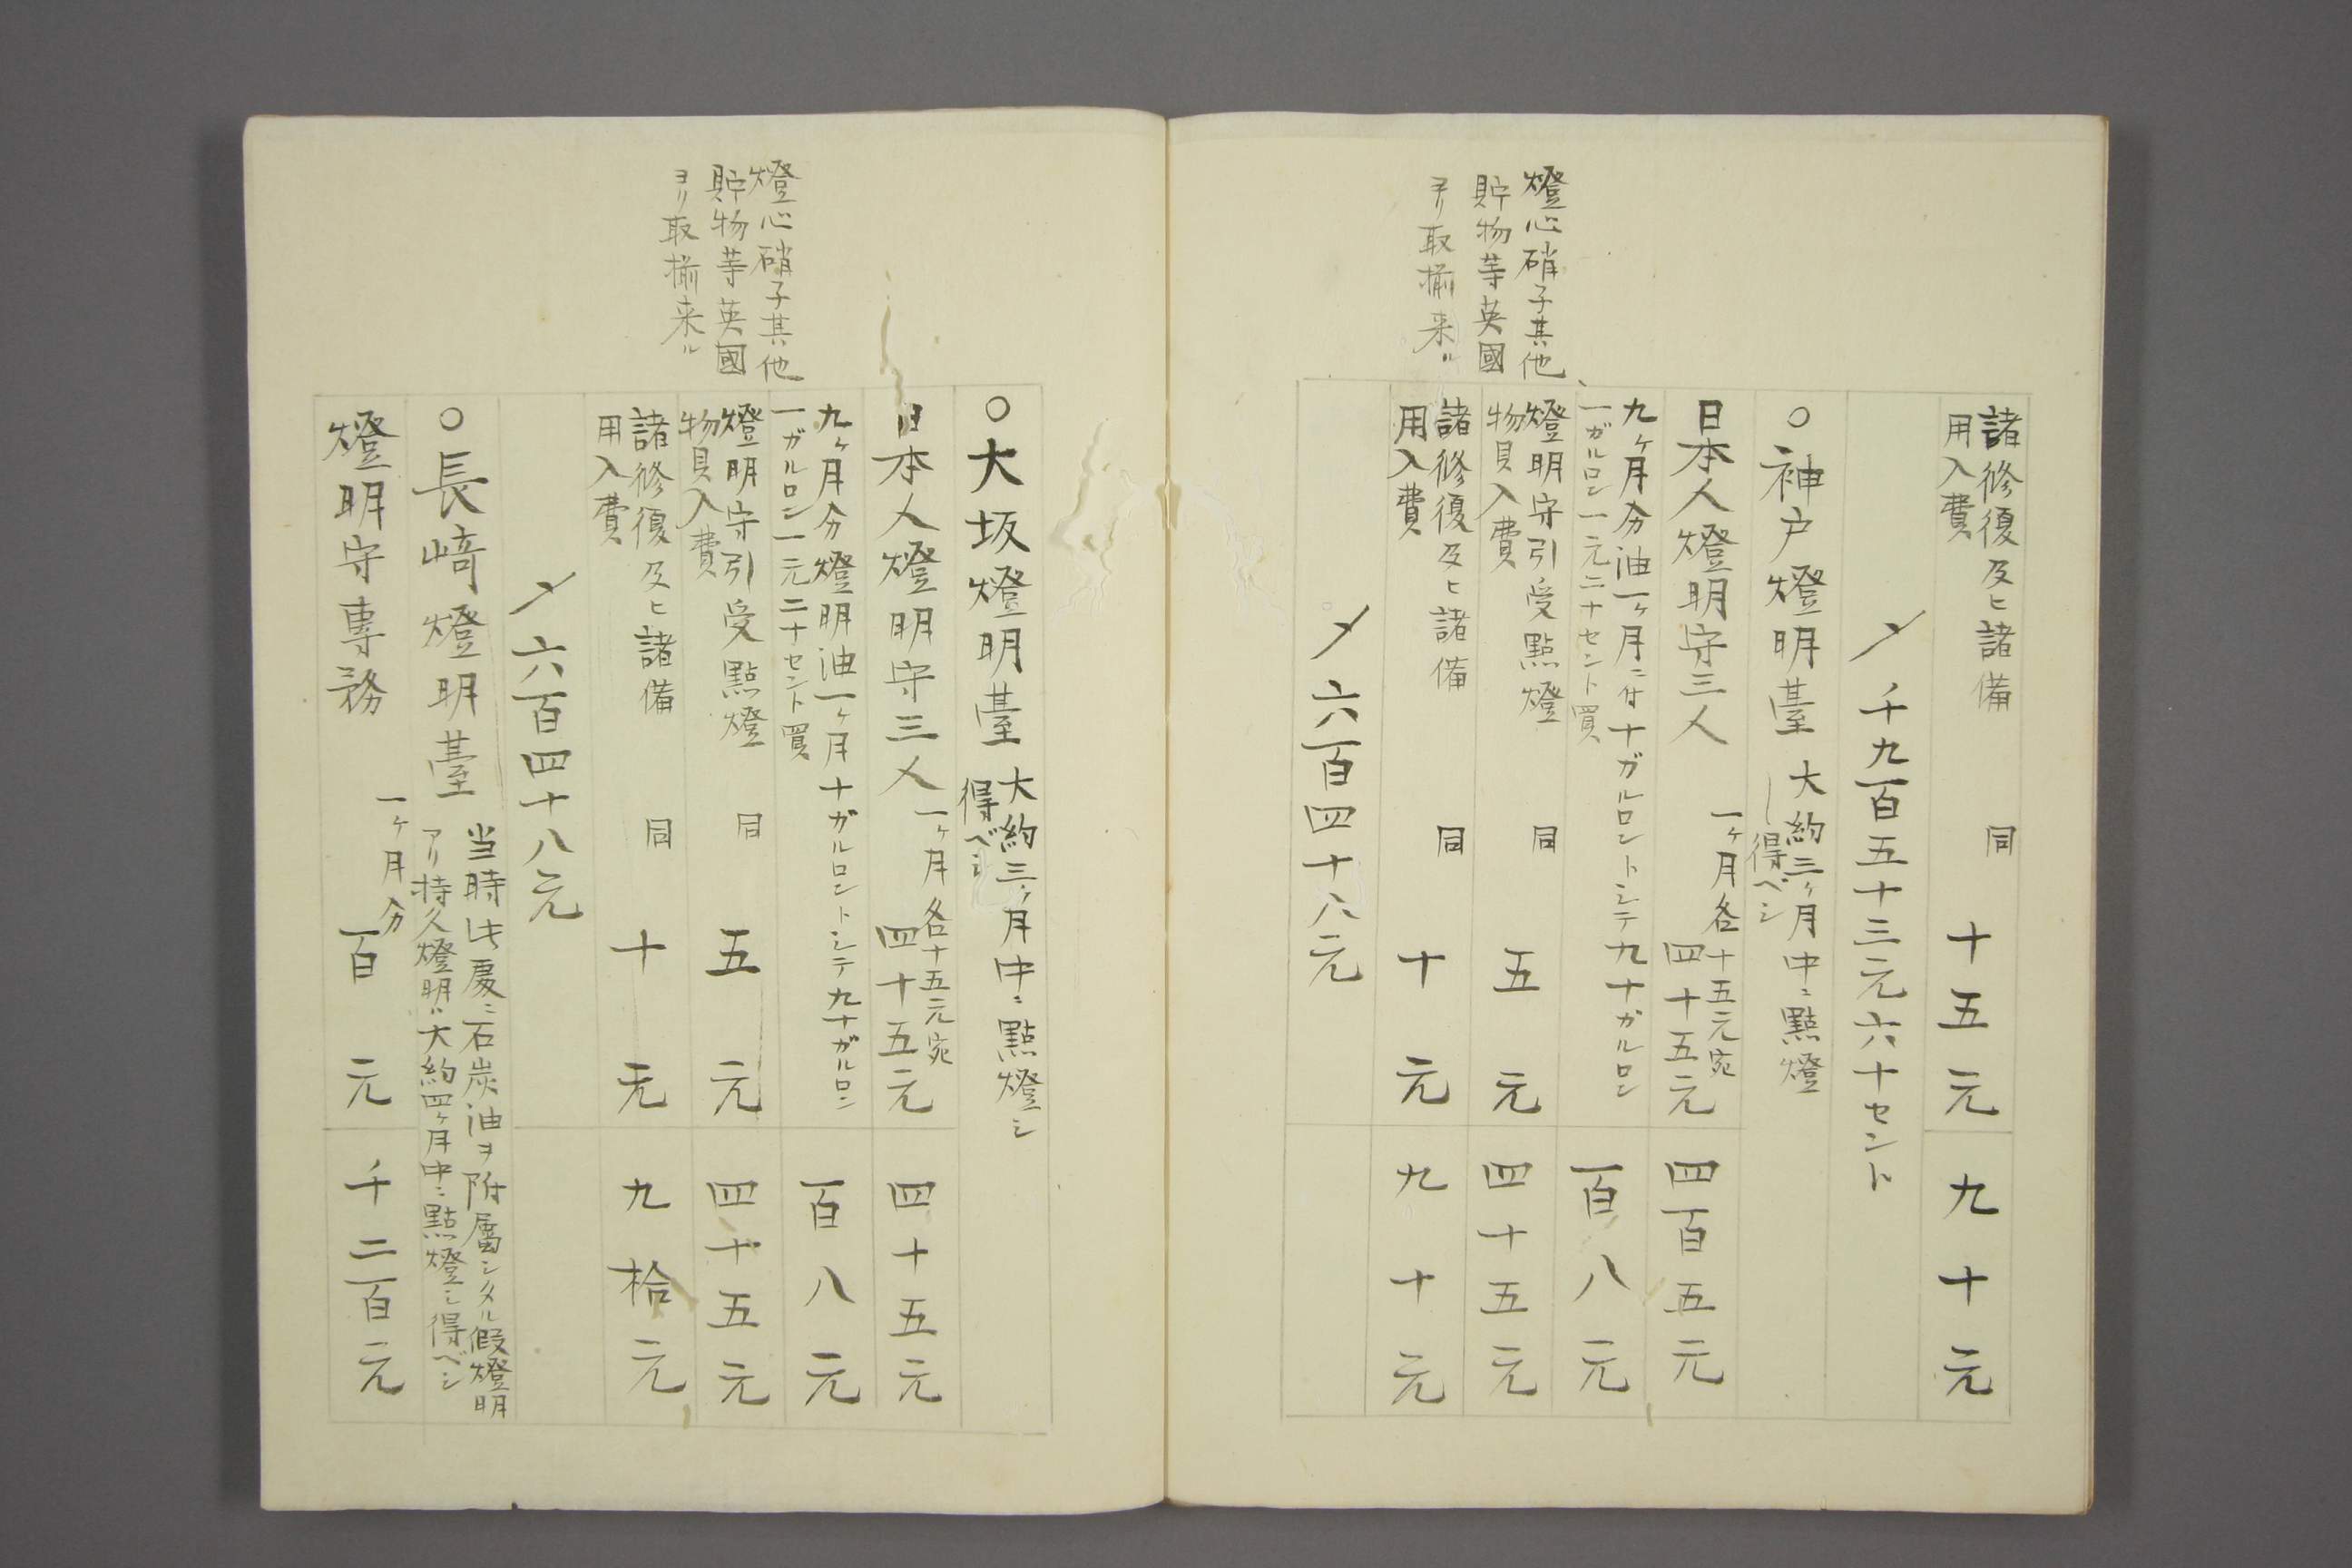 諸修復及ヒ諸備
用入費
同
十五元
九十元
〆千九百五十三元六十セント
○神戸燈明臺
大約三ヶ月中ニ點燈
シ得ベシ
日本人燈明守三人
一ヶ月各十五元宛
四十五元
四百五元
燈心硝子其他
貯物等英國
ヨリ取揃来ル
九ヶ月分油一ヶ月ニ付十ガルロントシテ九十ガルロン
一ガルロン一元二十セント買
百八元
燈明守引受點燈
物具入費
同
五元
四十五元
諸修復及ヒ諸備
用入費
同
十元
九十元
〆六百四十八元
○大坂燈明臺
大約三ヶ月中ニ點燈シ
得ベシ
日本人燈明守三人
一ヶ月各十五元宛
四十五元
四十五元
燈心硝子其他
貯物等英國
ヨリ取揃来ル
九ヶ月分燈明油一ヶ月十ガルロントシテ九十ガルロン
一ガルロン一元二十セント買
百八元
燈明守引受點燈
物具入費
同
五元
四十五元
諸修復及ヒ諸備
用入費
同
十元
九拾元
〆六百四十八元
○長﨑燈明臺
当時此處ニ石炭油ヲ附屬シタル假燈明
アリ持久燈明ハ大約四ヶ月中ニ點燈シ得ベシ
燈明守専務
一ヶ月分
百元
千二百元